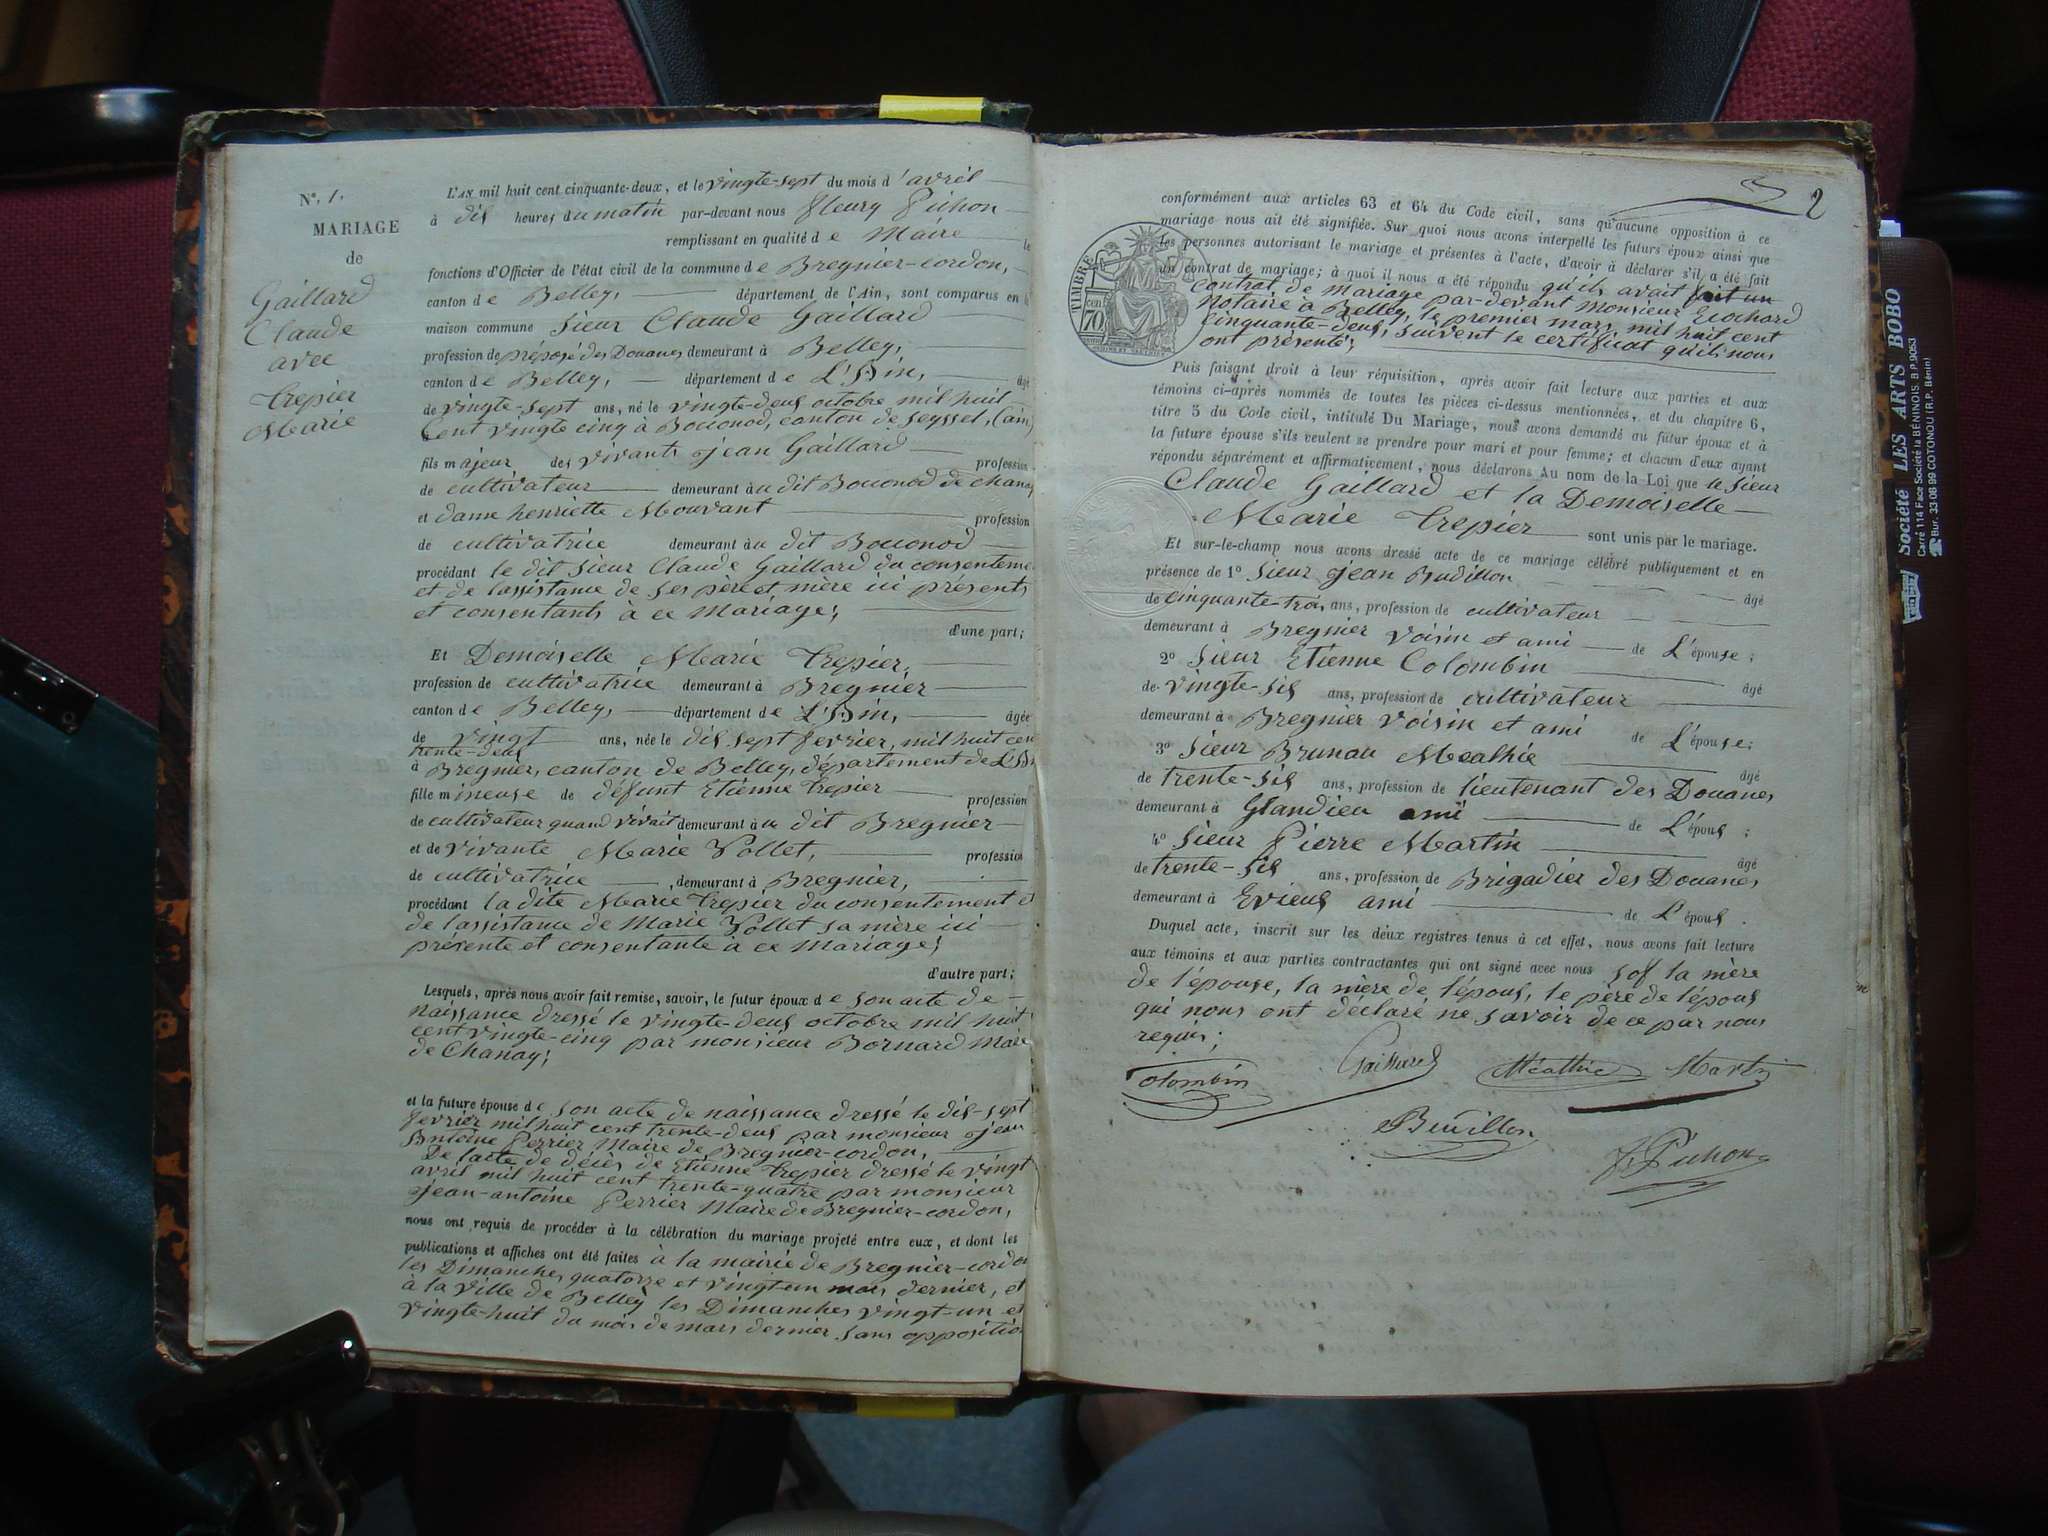 N°. 1.
MARIAGE
de
Gaillard
Claude
avec
Trepier
Marie
L'AN mil huit cent cinquante-deux, et le vingte-sept du mois d'avril
à dix heures du matin par-devant nous fleury Pichon
remplissant en qualité de Maire le
fonctions d'Officier de l'état civil de la commune de Bregnier-cordon,
canton de Belley, département de l'Ain, sont comparus en la
maison commune Sieur Claude Gaillard
profession de préposé des Douanes demeurant à Belley,
canton de Belley, département de L'Ain, âgé
de vingte-sept ans, né le vingte-deux octobre mil huit
Cent vingte cinq à Boconod, canton de Seyssel, (ain)
fils majeur des vivants jean Gaillard profession
de cultivateur demeurant au dit Boconod de chanay
et dame henriette Mouvant profession
de cultivatrice demeurant au dit Boconod
procédant le dit Sieur Claude Gaillard du consenteme
et de l'assistance de ses père et mère ici présents
et consentants à ce Mariage;
d'une part;
Et Demoiselle Marie Trepier,
profession de cultivatrice demeurant à Bregnier
canton de Belley, département de L'Ain, âgée
de vingt ans, née le dix sept fevrier, mil huit cen
trente-deux
à Bregnier, canton de Belley, département de L'Ain
fille mineuse de défunt Etienne Trepier profession
de cultivateur quand vivait demeurant au dit Bregnier
et de vivante Marie Pollet, profession
de cultivatrice, demeurant à Bregnier,
procédant la dite Marie Trepier du consentement et
de l'assistance de Marie Pollet sa mère ici
présente et consentante à ce Mariage;
d'autre part;
Lesquels, après nous avoir fait remise, savoir, le futur époux de son acte de
Naissance dressé le vingte-deux octobre mil huit
cent vingte-cinq par monsieur Bornard Maire
de Chanay;
et la future épouse de son acte de naissance dressé le dix-sept
fevrier mil huit cent trente-deux par monsieur jean
Antoine Perrier Maire de Bregnier-cordon,
De l'acte de décès de Etienne Trepier dressé le vingt
avril mil huit cent trente-quatre par monsieur
jean-antoine Perrier Maire de Bregnier-cordon,
nous ont requis de procéder à la célébration du mariage projeté entre eux, et dont les
publications et affiches ont été faites à la mairie de Bregnier-cordon
les Dimanches quatorze et vingt-un mars dernier, et
à la ville de Belley les Dimanches vingt-un et
vingte-huit du mois de mars dernier sans opposition
2
conformément aux articles 63 et 64 du Code civil, sans qu'aucune opposition à ce
mariage nous ait été signifiée. Sur quoi nous avons interpellé les futurs époux ainsi que
les personnes autorisant le mariage et présentes à l'acte, d'avoir à déclarer s'il a été fait
un contrat de mariage; à quoi il nous a été répondu qu'ils avait fait un
contrat de Mariage par-devant Monsieur Trochard
Notaire à Belley, le premier mars, mil huit cent
Cinquante-deux, suivent le certificat qu'ils nous
ont présenté;
TIMBRE
70
cen
Puis faisant droit à leur réquisition, après avoir fait lecture aux parties et aux
témoins ci-après nommés de toutes les pièces ci-dessus mentionnées, et du chapitre 6,
titre 5 du Code civil, intitulé Du Mariage, nous avons demandé au futur époux et à
la future épouse s'ils veulent se prendre pour mari et pour femme; et chacun d'eux ayant
répondu séparément et affirmativement, nous déclarons Au nom de la Loi que le Sieur
Claude Gaillard et la Demoiselle
Marie Trepier sont unis par le mariage.
Et sur-le-champ nous avons dressé acte de ce mariage célébré publiquement et en
présence de 1° Sieur jean Budillon âgé
de cinquante-trois ans, profession de cultivateur
demeurant à Bregnier voisin et ami de L'épouse;
2° Sieur Etienne Colombin âgé
de vingte-six ans, profession de cultivateur
demeurant à Bregnier voisin et ami de L'épouse;
3° Sieur Brunau Meathie âgé
de trente-six ans, profession de lieutenant des Douanes
demeurant à Glandieu ami de L'époux;
4° Sieur Pierre Martin âgé
de trente-six ans, profession de Brigadier des Douanes,
demeurant à Evieux ami de L'époux.
Duquel acte, inscrit sur les deux registres tenus à cet effet, nous avons fait lecture
aux témoins et aux parties contractantes qui ont signé avec nous sof la mère
de l'épouse, la mère de l'époux, le père de l'époux
qui nous ont déclaré ne savoir de ce par nous
requis;
Colombin Gaillard Méathie Martin
Budillon
f. Pichon
Société LES ARTS BOBO
Carré 114 Face Société la BÉNINOIS. B.P. 9053
Bur. 33 08 99 COTONOU (R.P. Bénin)